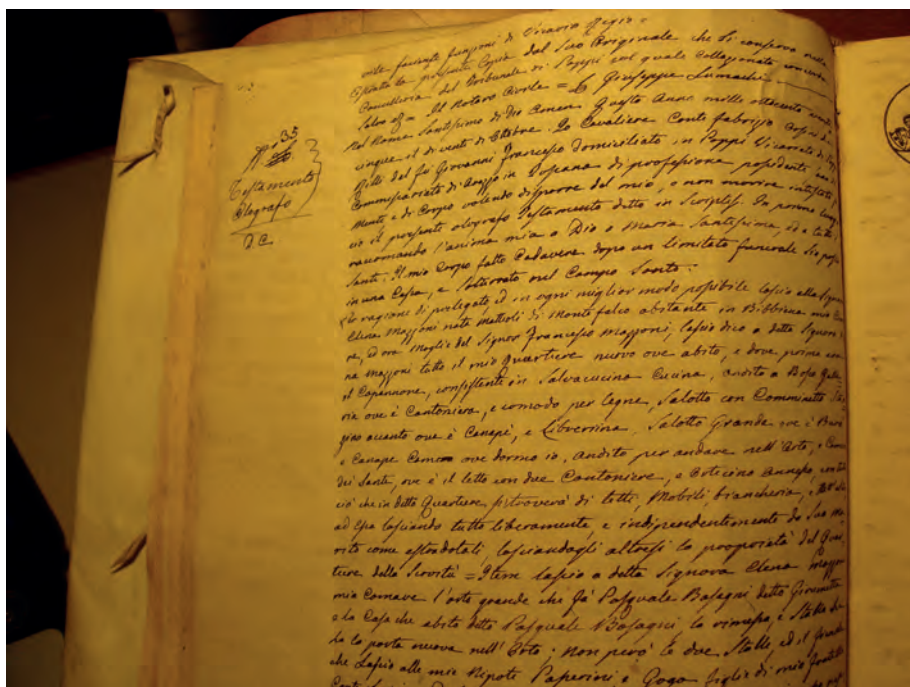 N.° 35
Testamento
Olografo
D. C.
vile facente funzioni di Vicario Regio =
presente Copia dal suo Originale che si conserva nella
Cancelleria del Tribunale di Poppi col quale collazionata concorda
Salvo = Il Notaro Civile = Giuseppe Lumachi
Nel Nome Santissimo di Dio Amen Questo Anno mille ottocento venti
cinque il dì venti di Ottobre. Io Cavaliere Conte Fabrizio
del fù Giovanni Francesco domiciliato in Poppi Vicariato di Poppi
Commissariato di Arezzo in Toscana di professione possidente
Mente e di Corpo volendo disporre del mio, e non morire intestato
il presente olografo Testamento detto in Scriptis. In primo luogo
raccomando l'anima mia a Dio a Maria Santissima, ed a tutti
Santi. Il mio Corpo fatto Cadavere dopo un limitato funerale sia posto
in una Cassa, e sotterrato nel Campo Santo:
ragione di prelegato ed in ogni miglior modo possibile lascio alla Signora
Elena Mazzoni nata Mattoli di Monte falco abitante in Bibbiena mia
ed ora Moglie del Signor Francesco Mazzoni, lascio dico a detta Signora
Mazzoni tutto il mio Quartiere nuovo ove abito, e dove prima era
il Capannone, consistente in Salvacucina Cucina, andito a
ove è Cantoniera, e comodo per legne, Salotto con Camminetto
accanto ove è Canapè, e Libreriina, Salotto Grande ove è
e Canapè Camera ove dormo io, andito per andare nell'Orto, e
dei Santi, ove è il letto con due Cantoniere, e annesso, con tutto
ciò che in detto Quartiere si troverà di letti, Mobili, biancheria,
ad Essa lasciando tutto liberamente, e indipendentemente da suo Ma-
rito come estradotali, lasciandogli altresì la proprietà del Quar-
tiere della = Item lascio a detta Signora Elena Mazzoni
mia l'orto grande che fà Pasquale Basagni detto
e la Casa che abita detto Pasquale Basagni la rimessa, e Stalla
la porta nuova nell'Orto; non però le due Stalle, ed il
che Lascio alle mie Nipote Paperini e figlie di mio fratello